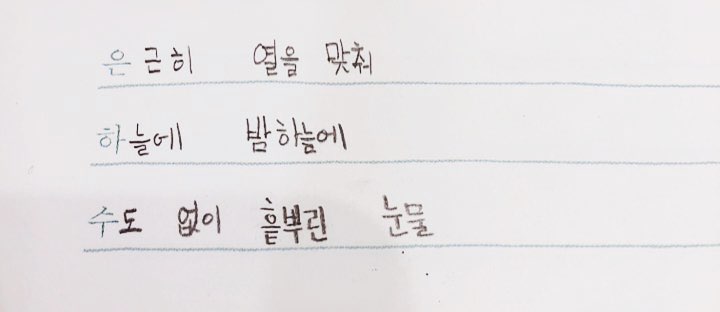 은근히 열을 맞춰
하늘에 밤하늠에
수도 없이 흩뿌린 눈물